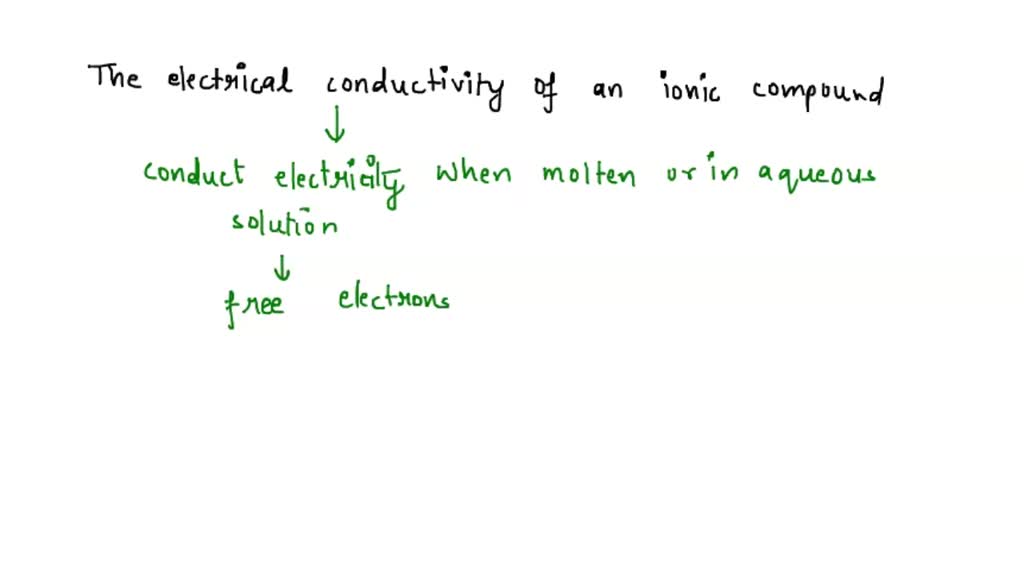 The electrical conductivity of an ionic compound
conduct electricity when molten or in aqueous
solution
free electrons